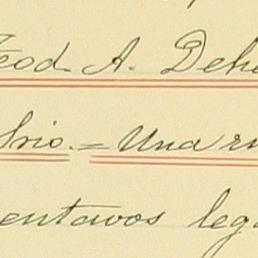 Teod. A. Dehe
Srio. = Una ru
entavos lega